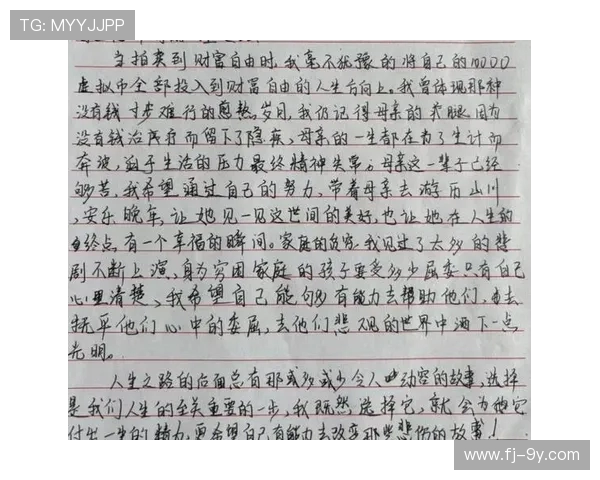 TG: MYYJJPP
当拍卖到财富自由时,我毫不犹豫的将自己的10000
虚拟币全部投入到财富自由的人生方向上。我曾体现那种
没有钱寸步难行的煎熬岁月,我仍记得母亲的 腿 因为
没有钱治疗而留下了隐疾、母亲的一生都在为了生计而
奔波,迫于生活的压力最终精神失常。母亲这一辈子已经
够苦,我希望通过自己的努力,带着母亲去游历山川
,安乐晚年,让她见一见这世间的美好,也让她在人生的
终点有一个幸福的瞬间。家庭的贫穷,我见过了太多的悲
剧不断上演,身为穷困家庭的孩子要受多少屈委只有自己
心里清楚、我希望自己能够有能力去帮助他们,去
抚平他们心中的委屈,去他们悲观的世界中洒下一点
光明。
人生之路的后面总有那或多或少令人动容的故事,选择
是我们人生的至关重要的一步,我既然选择它,就会为他它
付出一生的精力,更希望自己有能力去改变那些悲伤的故事!
www.fj-9y.com